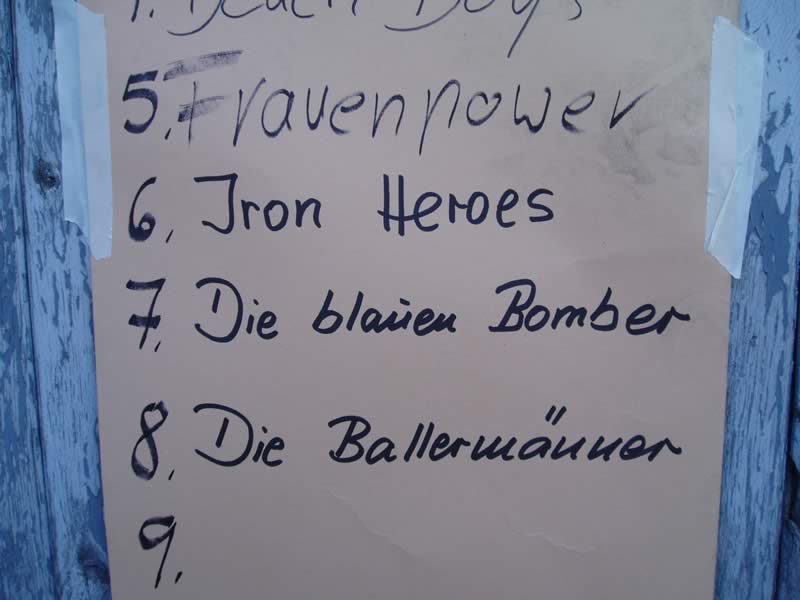 4. Beach Boys
5. Frauenpower
6. Iron Heroes
7. Die blauen Bomber
8. Die Ballermänner
9.